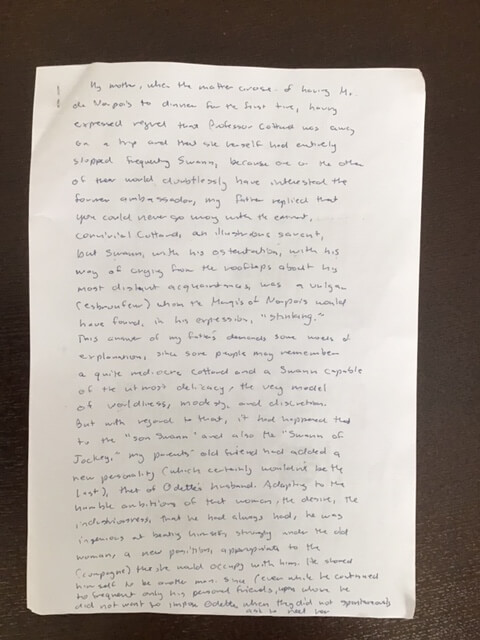 My mother, when the matter arose of having M.
de Norpois to dinner for the first time, having
expressed regret that Professor Cottard was away
on a trip and that she herself had entirely
stopped frequenting Swann, because one or the other
of them would doubtlessly have interested the
former ambassador, my father replied that
you could never go wrong with the eminent,
convivial Cottard, an illustrious savant,
but Swann, with his ostentation, with his
way of crying from the rooftops about his
most distant acquaintances, was a vulgar
(esbroufeur) whom the Marquis of Norpois would
have found, in his expression, "stinking."
This answer of my father's demands some words of
explanation, since some people may remember
a quite mediocre Cottard and a Swann capable
of the utmost delicacy, the very model
of worldliness, modesty, and discretion.
But with regard to that, it had happened that
to the "son Swann" and also the "Swann of
Jockey," my parents' old friend had added a
new personality (which certainly wouldn't be the
last), that of Odette's husband. Adapting to the
humble ambitions of that woman, the desire, the
industriousness, that he had always had, he was
ingenious at himself strongly under the old
woman, a new position, appropriate to the
(compagne) the she would occupy with him. He showed
himself to be another man. Since (even while he continued
to frequent only his personal friends, upon whom he
did not want to impose Odette when they did not spontaneously
ask to meet her